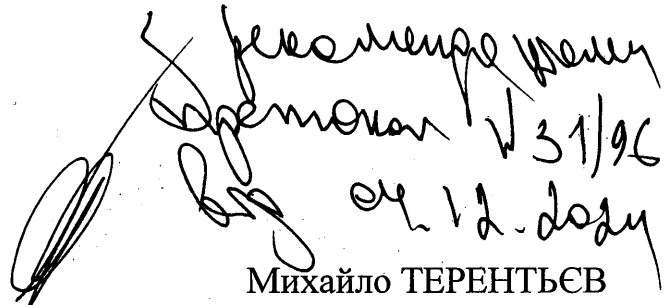 З рекомендаціями
протокол № 31/96
від 04.12.2024
Михайло ТЕРЕНТЬЄВ